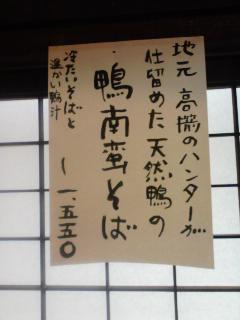 地元 高擶のハンターが
仕留めた天然鴨の
鴨南蛮そば
冷たいそばと
温かい鴨汁
一、五五〇